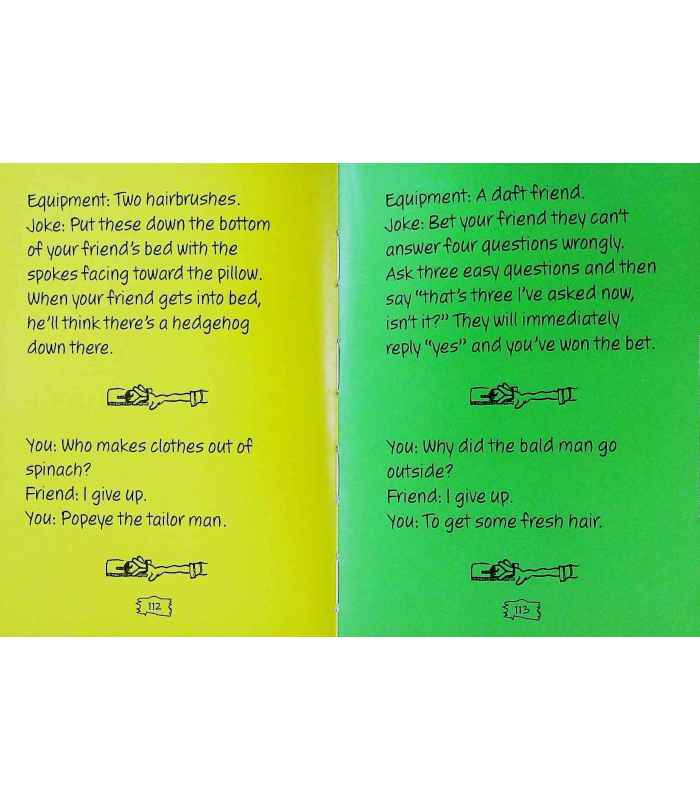 Equipment: Two hairbrushes.
Joke: Put these down the bottom
of your friend's bed with the
spokes facing toward the pillow.
When your friend gets into bed,
he'll think there's a hedgehog
down there.
You: Who makes clothes out of
spinach?
Friend: I give up.
You: Popeye the tailor man.
112
Equipment: A daft friend.
Joke: Bet your friend they can't
answer four questions wrongly.
Ask three easy questions and then
say "that's three I've asked now,
isn't it?" They will immediately
reply "yes" and you've won the bet.
You: Why did the bald man go
outside?
Friend: I give up.
You: To get some fresh hair.
113